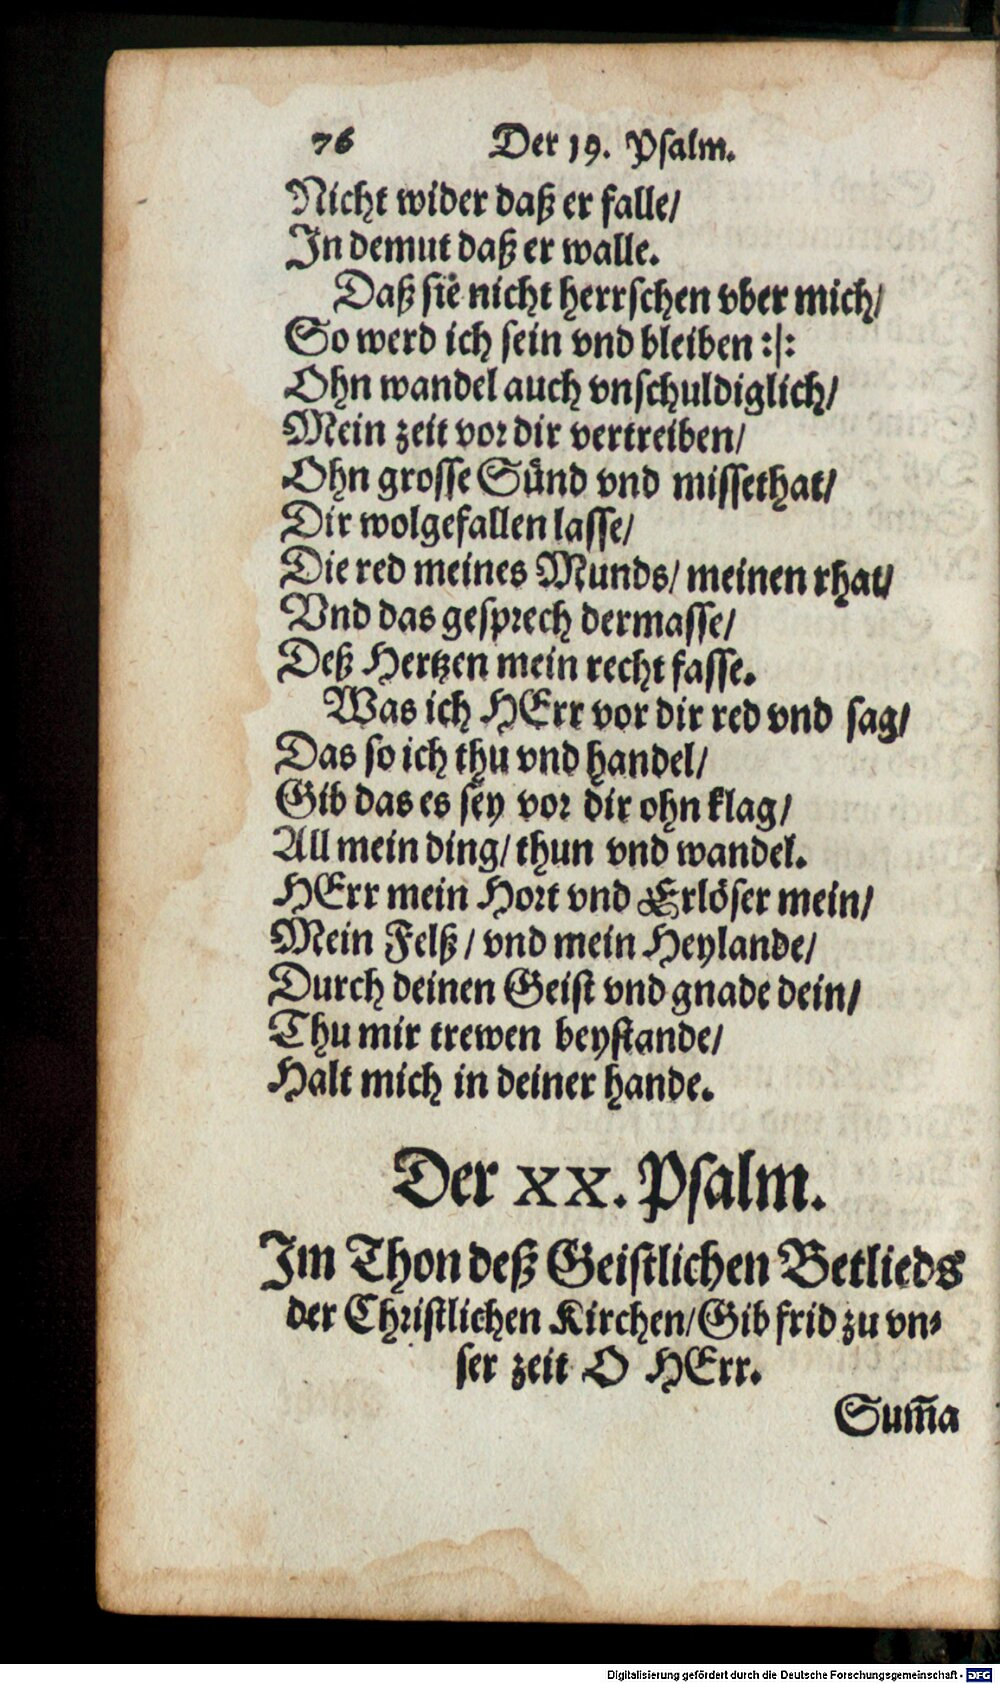 76 Der 19. Psalm.
Nicht wider daß er falle/
In demut daß er walle.
Daß sie nicht herrschen vber mich/
So werd ich sein vnd bleiben :|:
Ohn wandel auch vnschuldiglich/
Mein zeit vor dir vertreiben/
Ohn grosse Sünd vnd missethat/
Dir wolgefallen lasse/
Die red meines Munds/ meinen rhat/
Vnd das gesprech dermasse/
Deß Hertzen mein recht fasse.
Was ich HErr vor dir red vnd sag/
Das so ich thu vnd handel/
Gib das es sey vor dir ohn klag/
All mein ding/ thun vnd wandel.
HErr mein Hort vnd Erlöser mein/
Mein Felß/ vnd mein Heylande/
Durch deinen Geist vnd gnade dein/
Thu mir trewen beystande/
Halt mich in deiner hande.
Der XX. Psalm.
Im Thon deß Geistlichen Betlieds
der Christlichen Kirchen/ Gib frid zu vn⸗
ser zeit O HErr.
Sum̃a
Digitalisierung gefördert durch die Deutsche Forschungsgemeinschaft - DFG